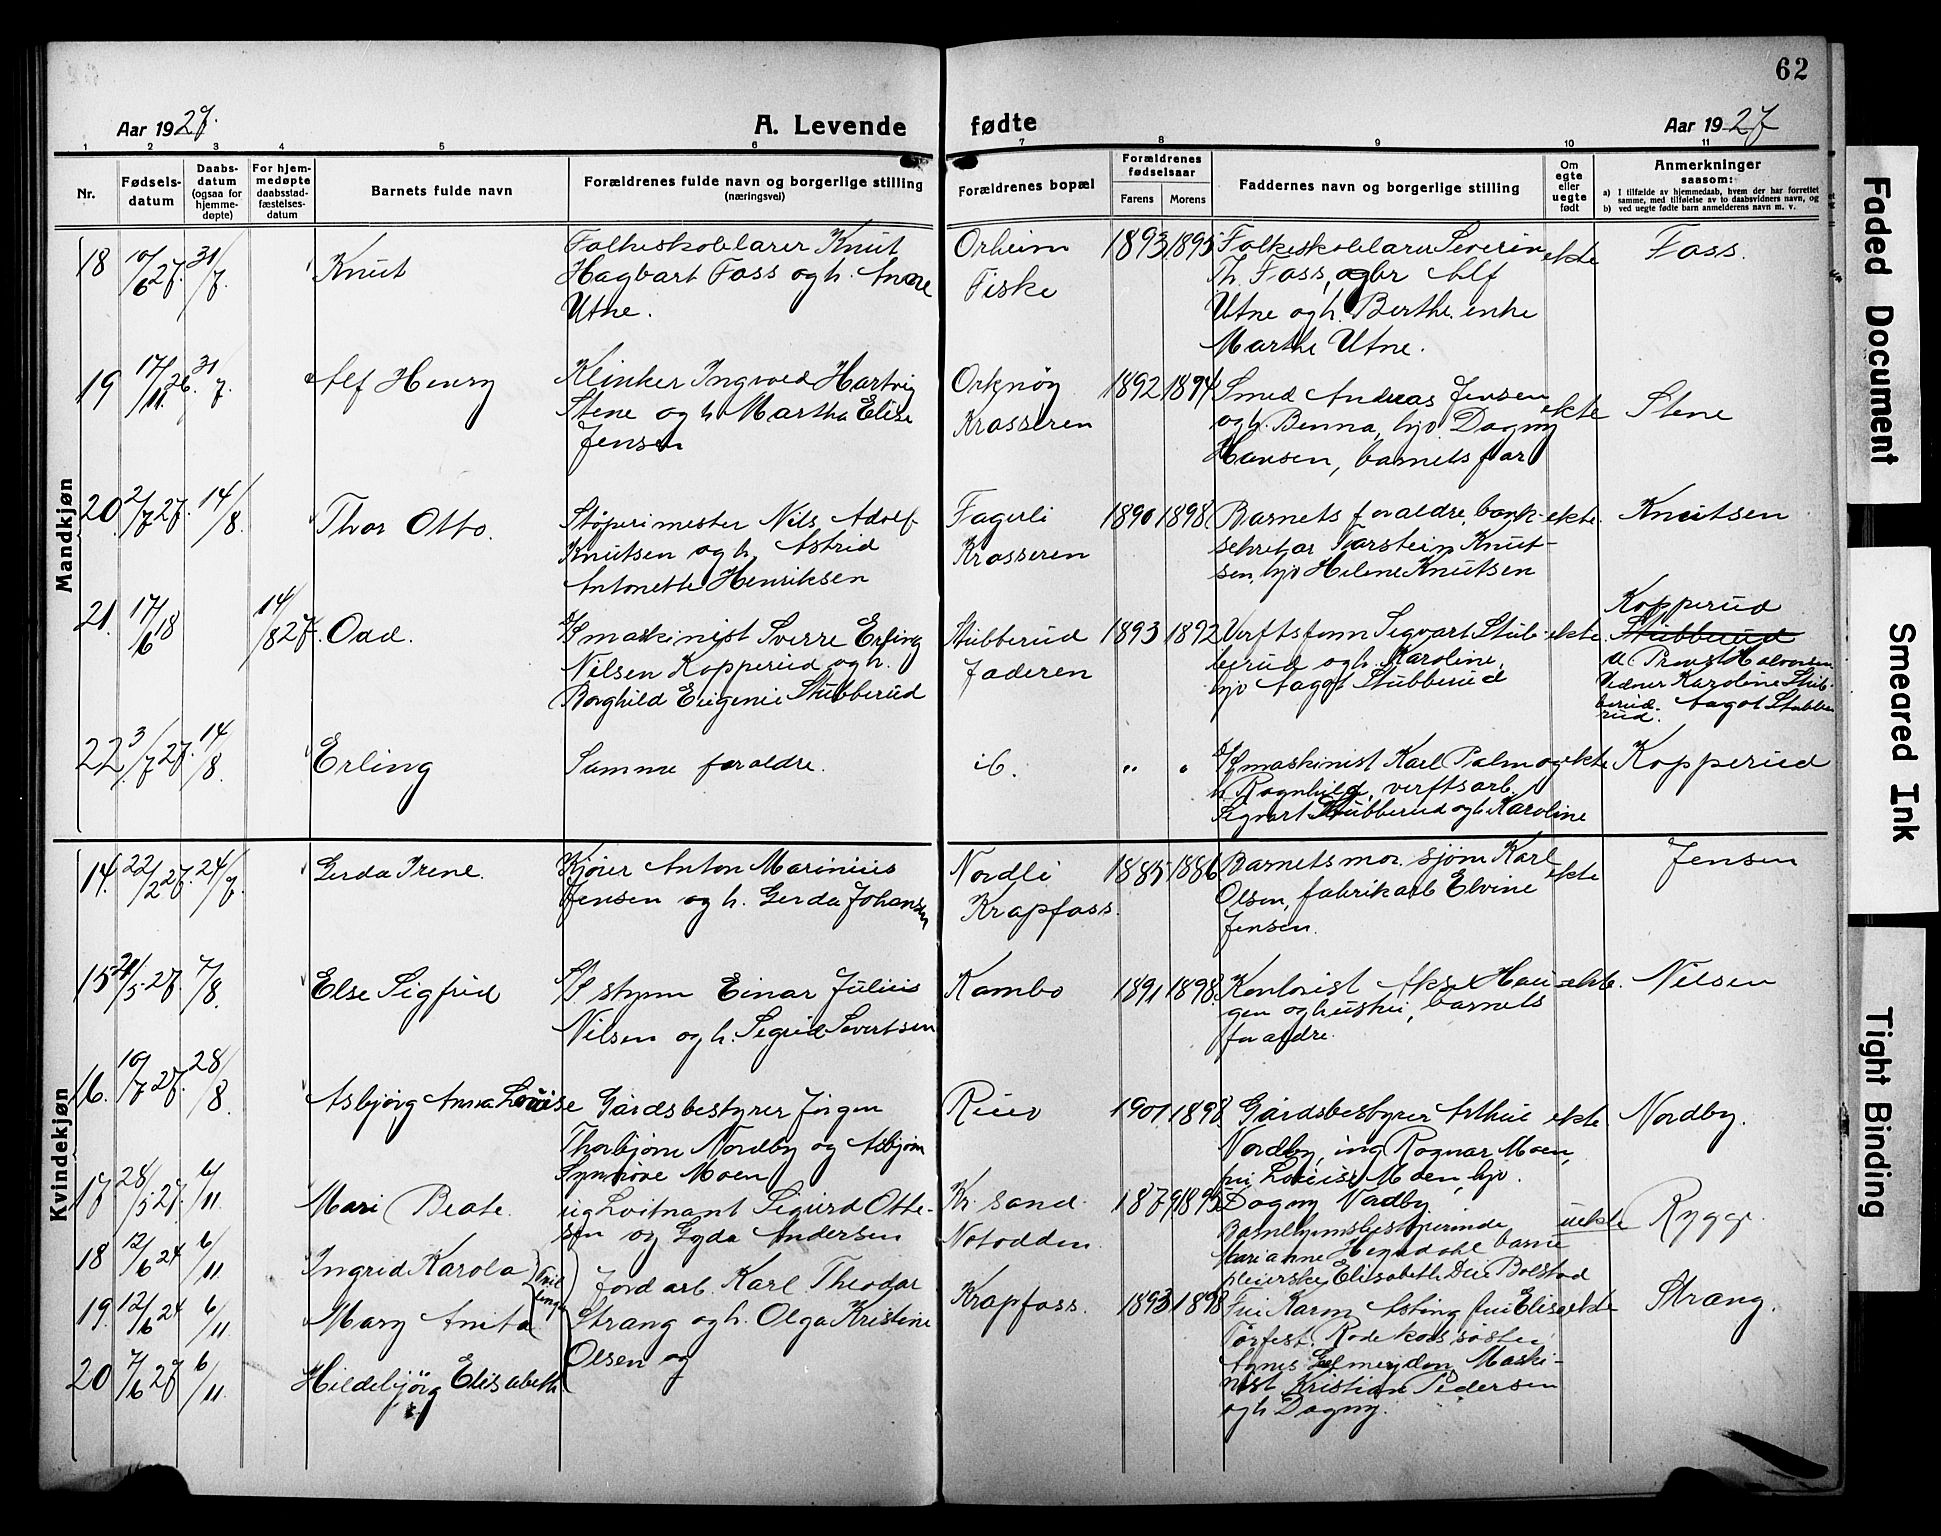 62
Aar 1927.
A. Levende
fødte
Aar 1927
1 2 3 4 5 6 7 8 9 10 11
Nr.
Fødsels-
datum
Daabs-
datum
(ogsaa for
hjemme-
døpte)
For hjem-
medøpte
daabsstad-
fæstelses-
datum
Barnets fulde navn
Forældrenes fulde navn og borgerlige stilling
(næringsvei)
Forældrenes bopæl
Forældrenes
fødselsaar
Farens
Morens
Faddernes navn og borgerlige stilling
Om
egte
eller
uegte
født
Anmerkninger
saasom:
a) I tilfælde av hjemmedaab, hvem der har forrettet
samme, med tilføielse av to daabsvidners navn, og
b) ved uegte fødte barn anmelderens navn m. v.
Mandkjøn
18 10/6 27. 31/7. Knut
Folkeskolelærer Knut
Hagbart Foss og h.
Utne.
Orheim
Fiske
1893 1895
Folkeskolelærer Severin
Th. Foss, Alf
Utne og h. Berthe. enke
Marthe Utne.
ekte
Foss.
19 17/11 26. 31/7. Alf Henry
Klinker Ingvald Hartvig
Stene og h. Martha Elise
Jensen
Orknøy
Krosseren
1892 1894
Smed Andreas Jensen
og h. Benna, hjv. Dagny
Hansen, barnets far
ekte
Stene
20. 2/7 27. 14/8. Thor Otto.
Støperimester Nils Adolf
Knutsen og h. Astrid
Antonette Henriksen
Fagerli
Krosseren
1890 1898
Barnets forældre, bank-
sekretær Torstein Knut-
sen, hjv Helene Knutsen
ekte.
Knutsen
21. 17/6 18 14/8 27. Odd.
maskinist Sverre Erling
Nilsen Kopperud og h.
Borghild Eugenie Stubberud
Stubberud
Jaderen
1893 1892
Verftsform Sigvart Stub-
berud og h. Karoline,
hjv Aagot Stubberud
ekte.
Kopperud
Stubberud
Provst Halvorsen
Vidner Karoline Stub-
berud. Aagot Stubbe
rud.
22. 3/7 27. 14/8. Erling
Samme foraldre.
ib.
" "
maskinist Karl Palm og
h Ragnhild, verftsarb.
Sigvart Stubberud og h Karoline
ekte
Kopperud
Kvindekjøn
14. 22/2 27. 24/7. Gerda Irene.
Kjører Anton Marinius
Jensen og h. Gerda Johansen
Nordli
Krapfoss.
1885 1886
Barnets mor. sjøm Karl
Olsen, fabrikarb Elvine
Jensen.
ekte
Jensen
15 21/5 27. 7/8. Else Sigfrid
styrm Einar Julius
Nilsen og h. Sigrid Sivertsen
Kambo
1891 1898
Kontorist Aksel Hau-
gen og hustru, barnets
foraldre.
ekte.
Nilsen
16. 10/7 27. 28/8. Asbjørg Anna Louise
Gårdsbestyrer Jørgen
Thorbjørn Nordby og Asbjørn
Synnøve Moen
Rier
1901 1898
Gårdsbestyrer Arthur
Nordby, ing Ragnar Moen,
fru Louise Moen, hjv.
Dagny Nordby
ekte
Nordby.
17 28/5 27. 6/11. Mari Beate.
Løitnant Sigurd Otte-
sen og Gyda Andersen
Kr. sand.
Notodden.
1879 1895
Barnehjemsbestyrerinde
Marianne barne
pleierske Elisabeth Bolstad
uekte
Rygge.
18 12/6 24 6/11. Ingrid Karola
19. 12/6 24 6/11. Mary Anita
Tvil
linger
20 7/6 27 6/11. Hildebjørg Elisabeth
Jord arb. Karl Theodor
Strang og h. Olga Kristine
Olsen og
Krapfoss.
1893 1898
Fru Karen Asting fru Elise
Torfest. Røde kors søster
Agnes Maski-
nist Kristian Pedersen
og h Dagny.
ekte
Strang.
Faded Document
Smeared Ink
Tight Binding